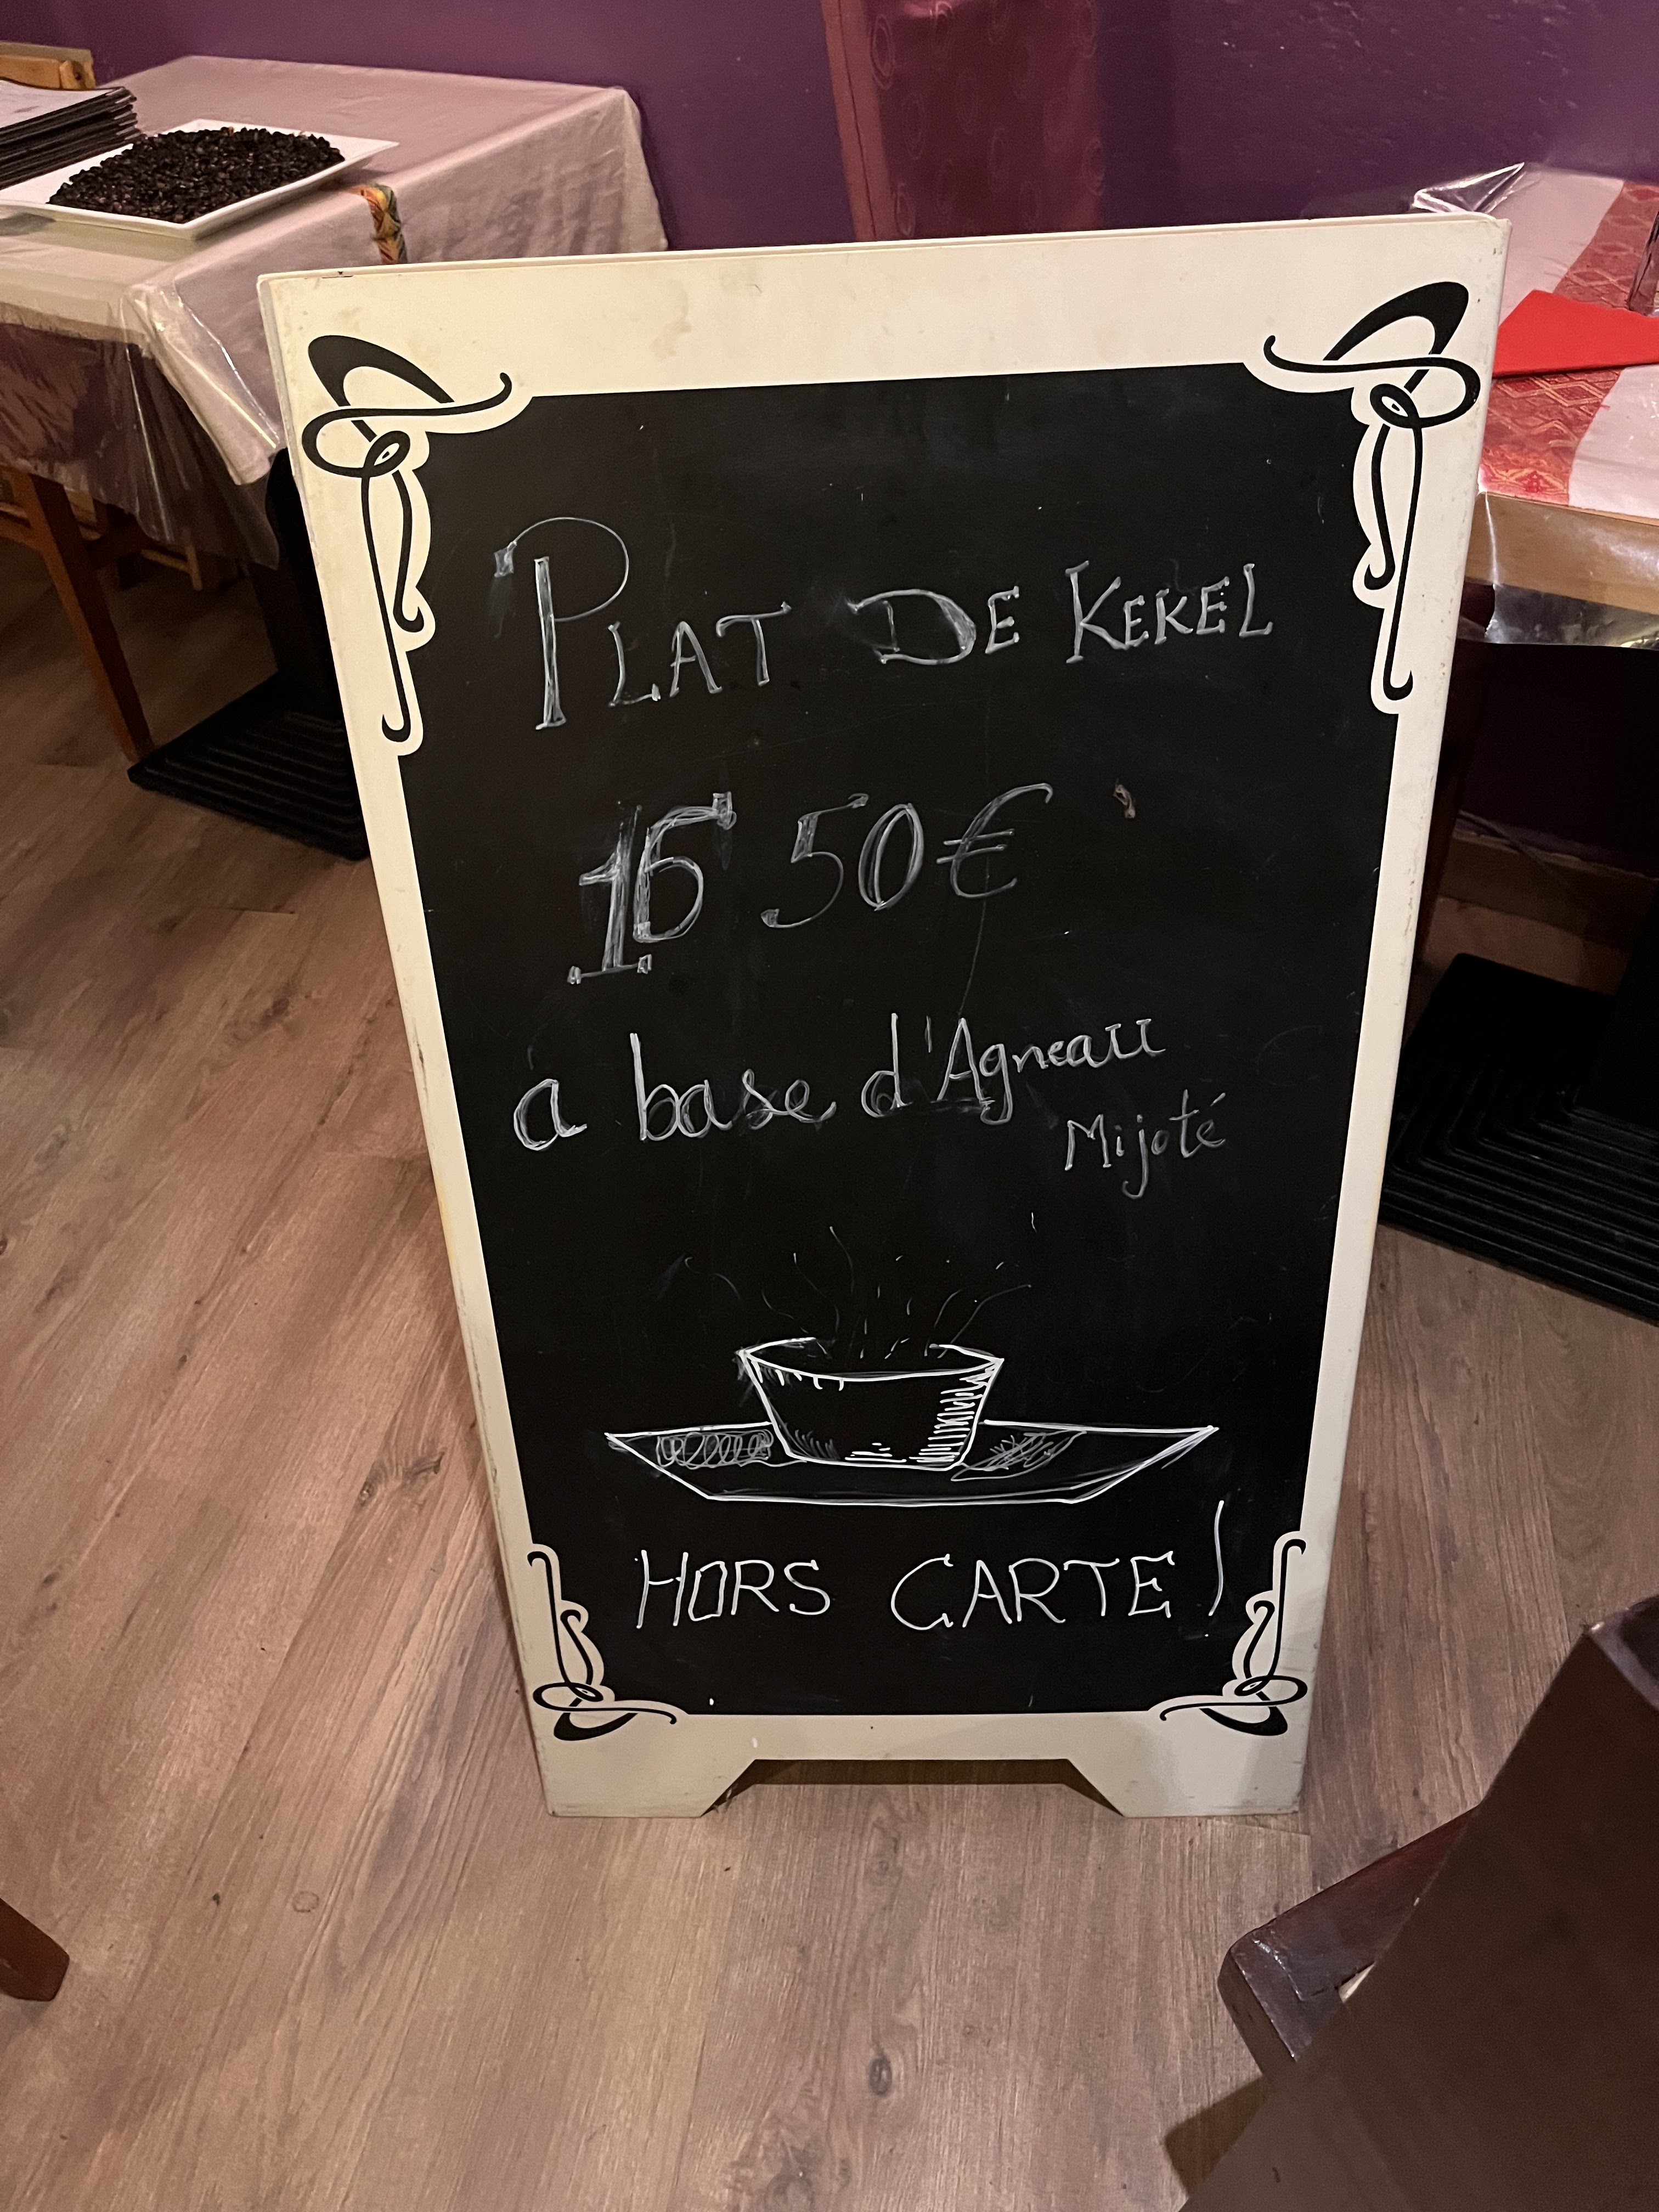 PLAT DE KEKEL
16 50€
a base d'Agneau
Mijoté
HORS CARTE !